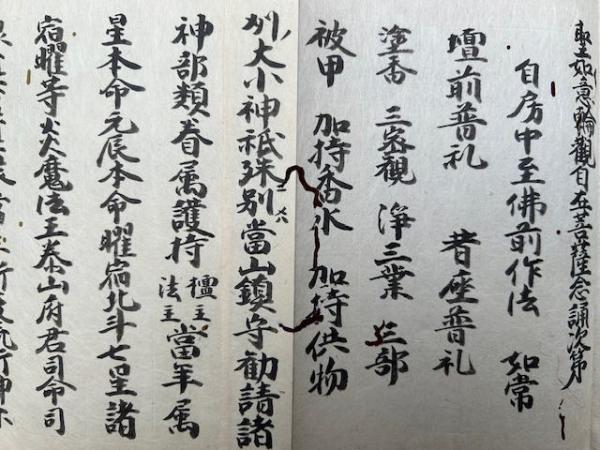 聖如意輪觀自在菩薩念誦次第
自房中至佛前作法 如常
壇前普礼 着座普礼
塗香 三密觀 淨三業 三部
被甲 加持香水 加持供物
州大小神祇殊別當山鎮守勧請諸
神部類眷属護持檀主法主當年属
星本命元辰本命曜宿北斗七星諸
宿曜等炎魔法王泰山府君司命司